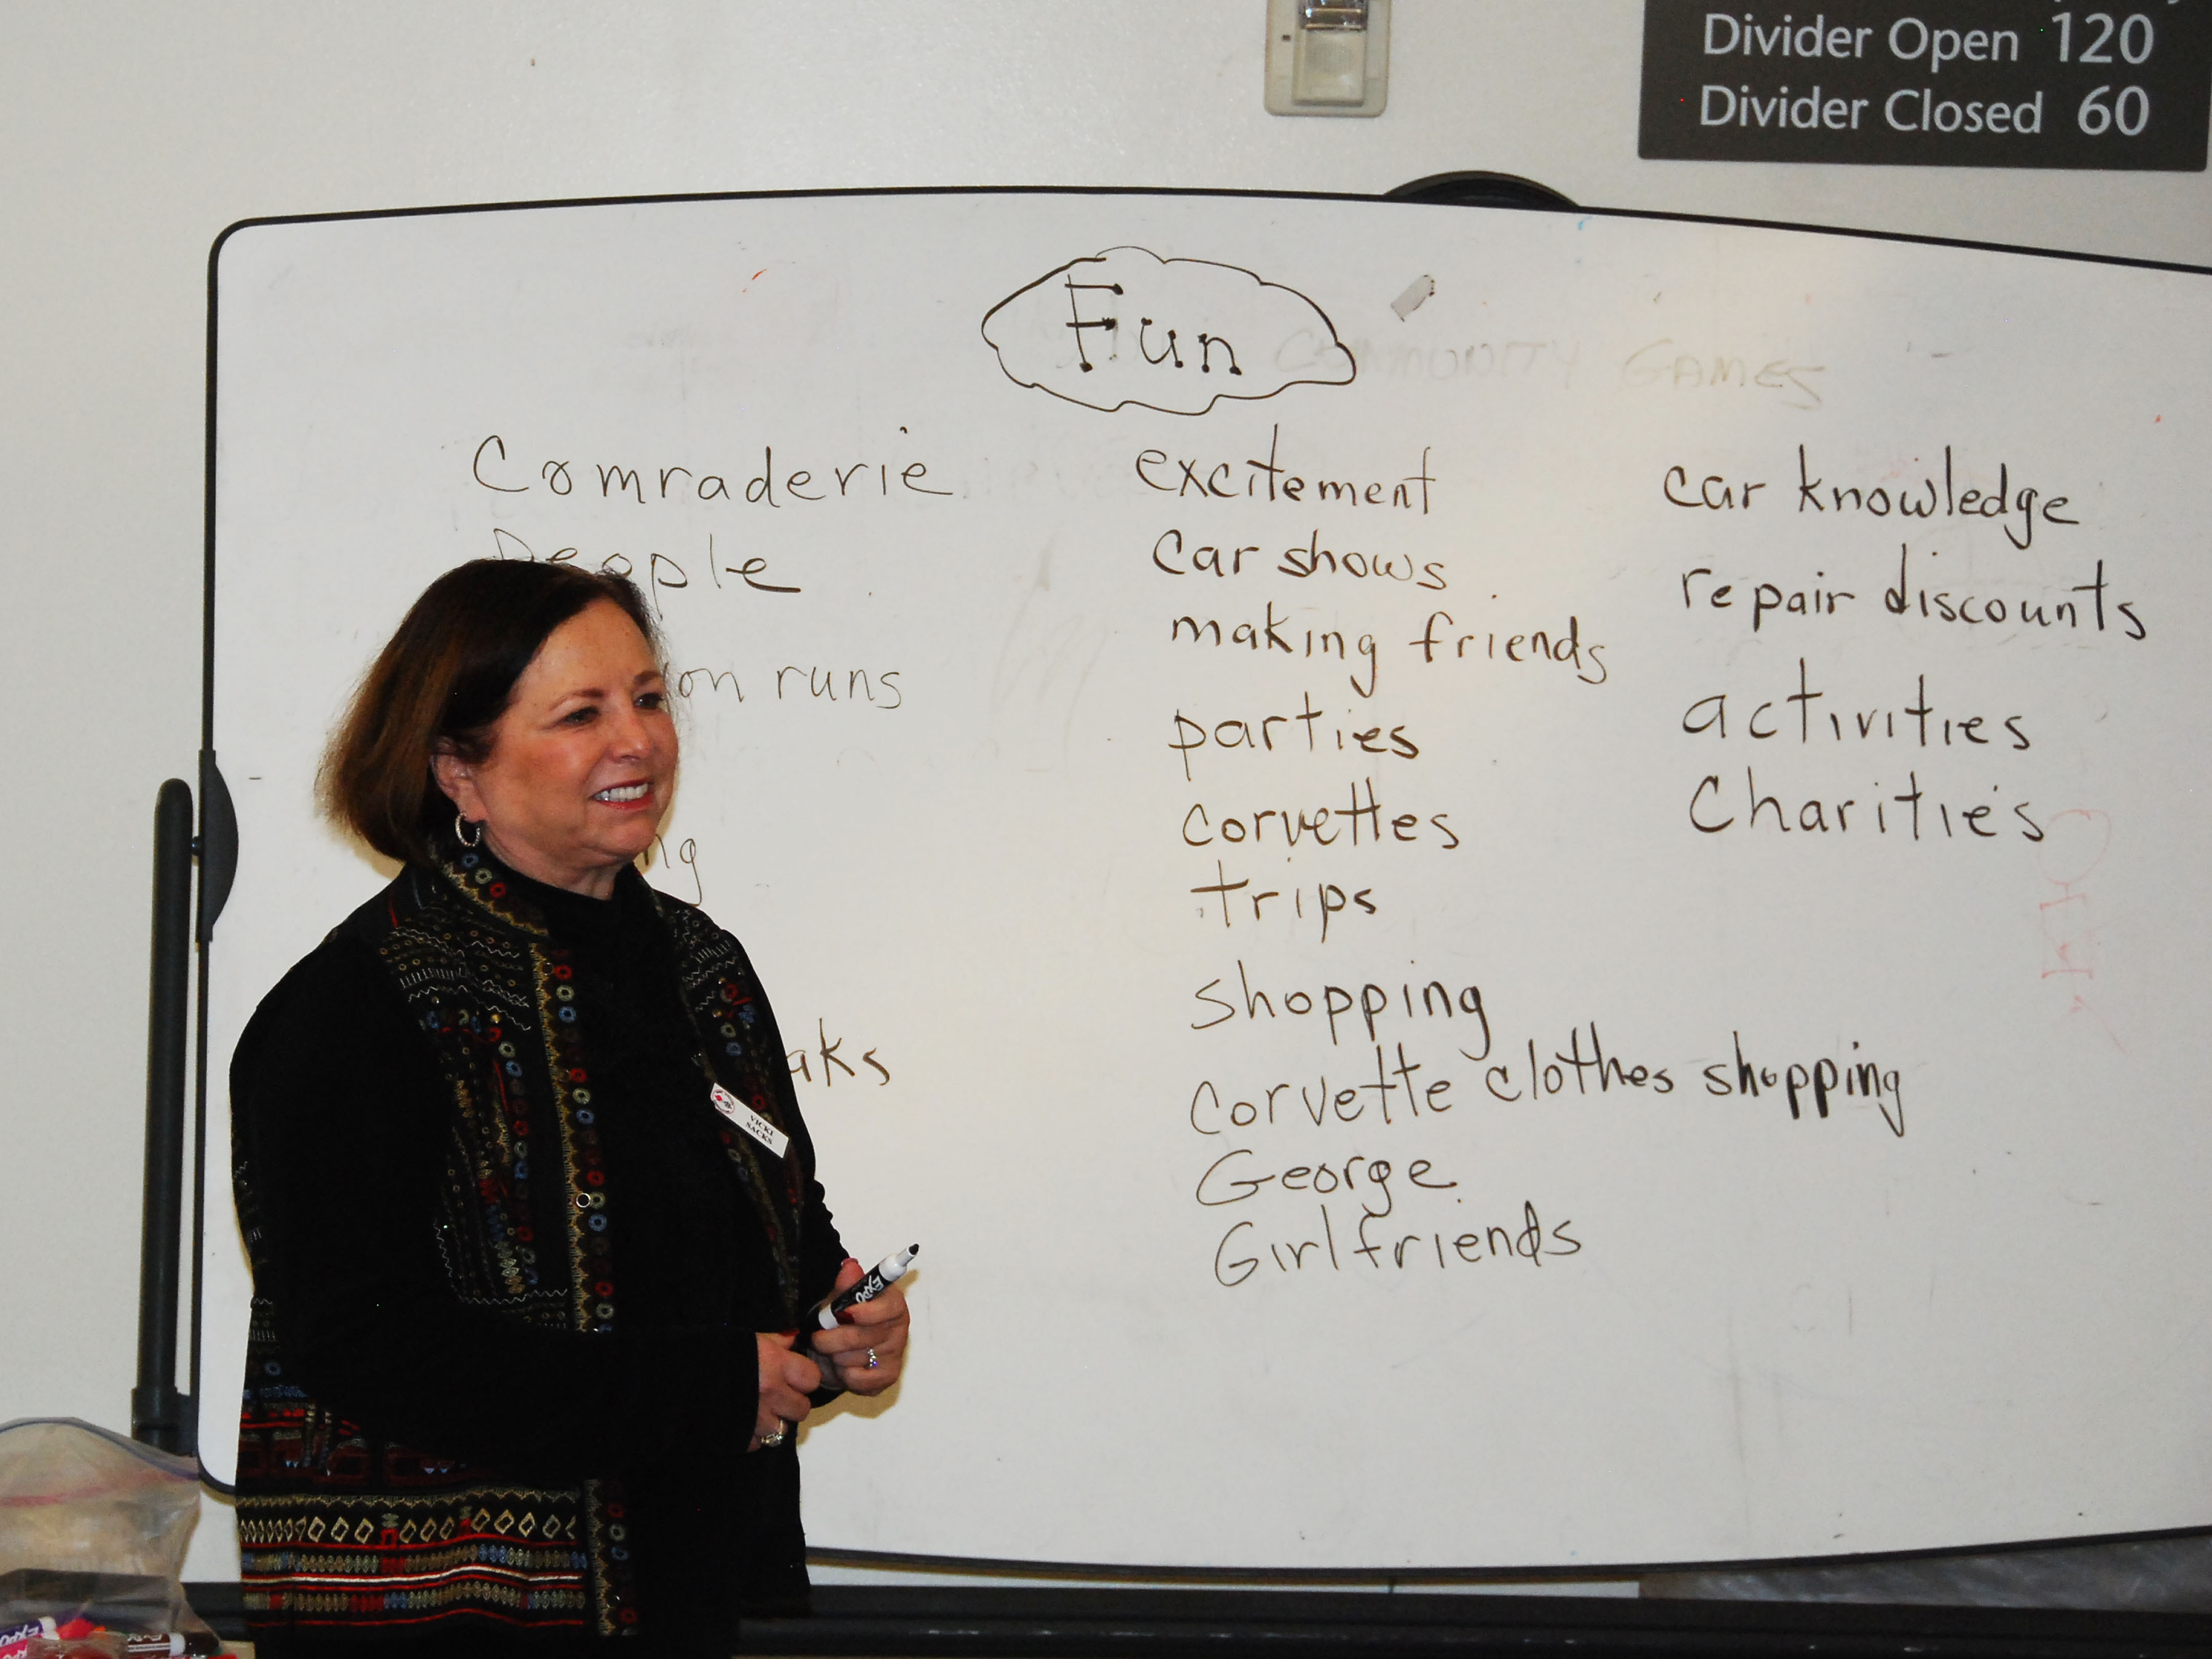 Divider Open 120
Divider Closed 60
Fun
COMMUNITY GAMES
Comraderie
People
runs
excitement
car shows
making friends
parties
corvettes
trips
shopping
corvette clothes shopping
George
Girlfriends
car knowledge
repair discounts
activities
Charities
VICKI
SACKS
EXPO
EXPO